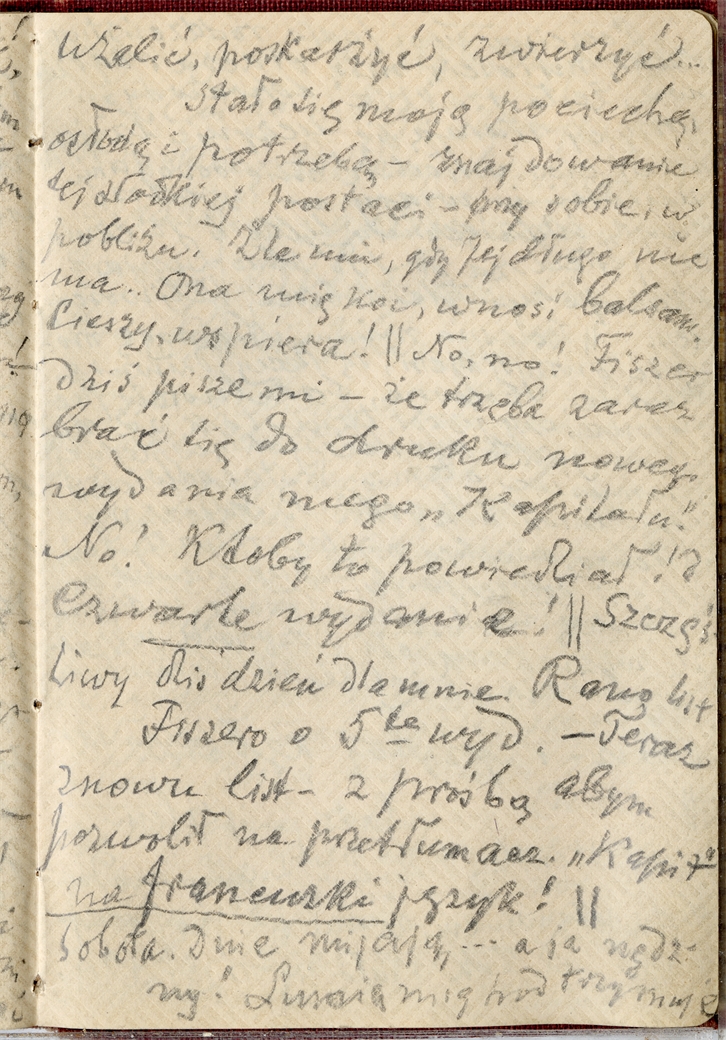 użalić, poskarżyć, zwierzyć...
Stało się moją pociechą,
osłodą i potrzebą – znajdowanie
tej słodkiej postaci – przy sobie, w
pobliżu. Źle mi, gdy Jej długo nie
ma.. Ona mię koi, wnosi balsam.
Cieszy, wspiera! || No, no! Fiszer
dziś pisze mi – że trzeba zaraz
brać się do druku nowego
wydania mego „Kapitału".
No! Ktoby to powiedział!?
Czwarte wydanie! || Szczęś-
liwy dziś dzień dla mnie. Rano list
Fiszera o 5te wyd. – Teraz
znowu list – z prośbą abym
pozwolił na przetłumacz. „Kapit"
na francuski język! ||
Sobota. Dnie mijają, ... a ja nędz-
ny! Lusia mię podtrzymuje